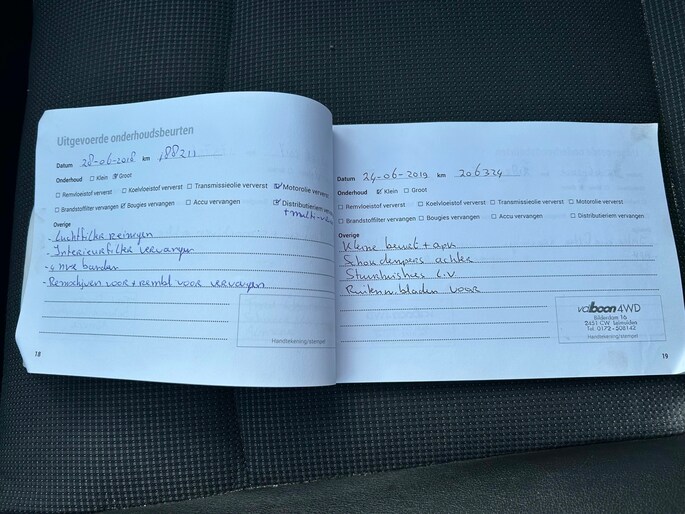 Uitgevoerde onderhoudsbeurten
Datum 28-06-2018 km 188211
Onderhoud ☐ Klein ☑ Groot
☐ Remvloeistof ververst ☐ Koelvloeistof ververst ☐ Transmissieolie ververst ☑ Motorolie ververst
☐ Brandstoffilter vervangen ☑ Bougies vervangen ☐ Accu vervangen ☑ Distributieriem vervangen
+ multi-
Overige
- Luchtfilter reinigen
- Interieurfilter vervangen
- 4 nwe banden
- Remschijven voor + rembl voor vervangen
Handtekening/stempel
18
Datum 24-06-2019 km 206334
Onderhoud ☑ Klein ☐ Groot
☐ Remvloeistof ververst ☐ Koelvloeistof ververst ☐ Transmissieolie ververst ☐ Motorolie ververst
☐ Brandstoffilter vervangen ☐ Bougies vervangen ☐ Accu vervangen ☐ Distributieriem vervangen
Overige
Kleine beurt + apk
Schokdempers achter
Ruitenw. bladen voor
valboon 4WD
Bilderdam 16
2451 CW Leimuiden
Tel. 0172-508142
Handtekening/stempel
19